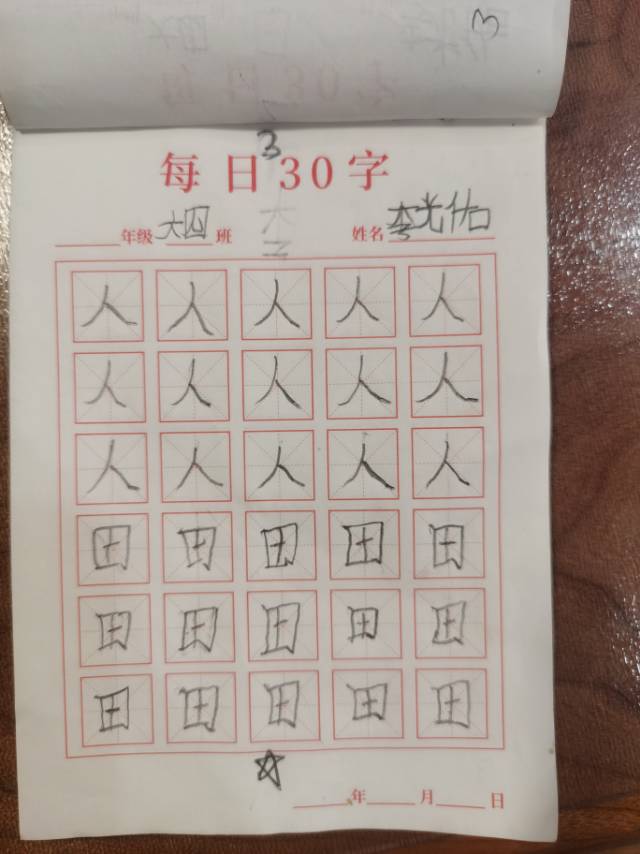 3
3
每日30字
年级 大四 班 姓名 李光佑
人 人 人 人 人
人 人 人 人 人
人 人 人 人 人
田 田 田 田 田
田 田 田 田 田
田 田 田 田 田
年 月 日